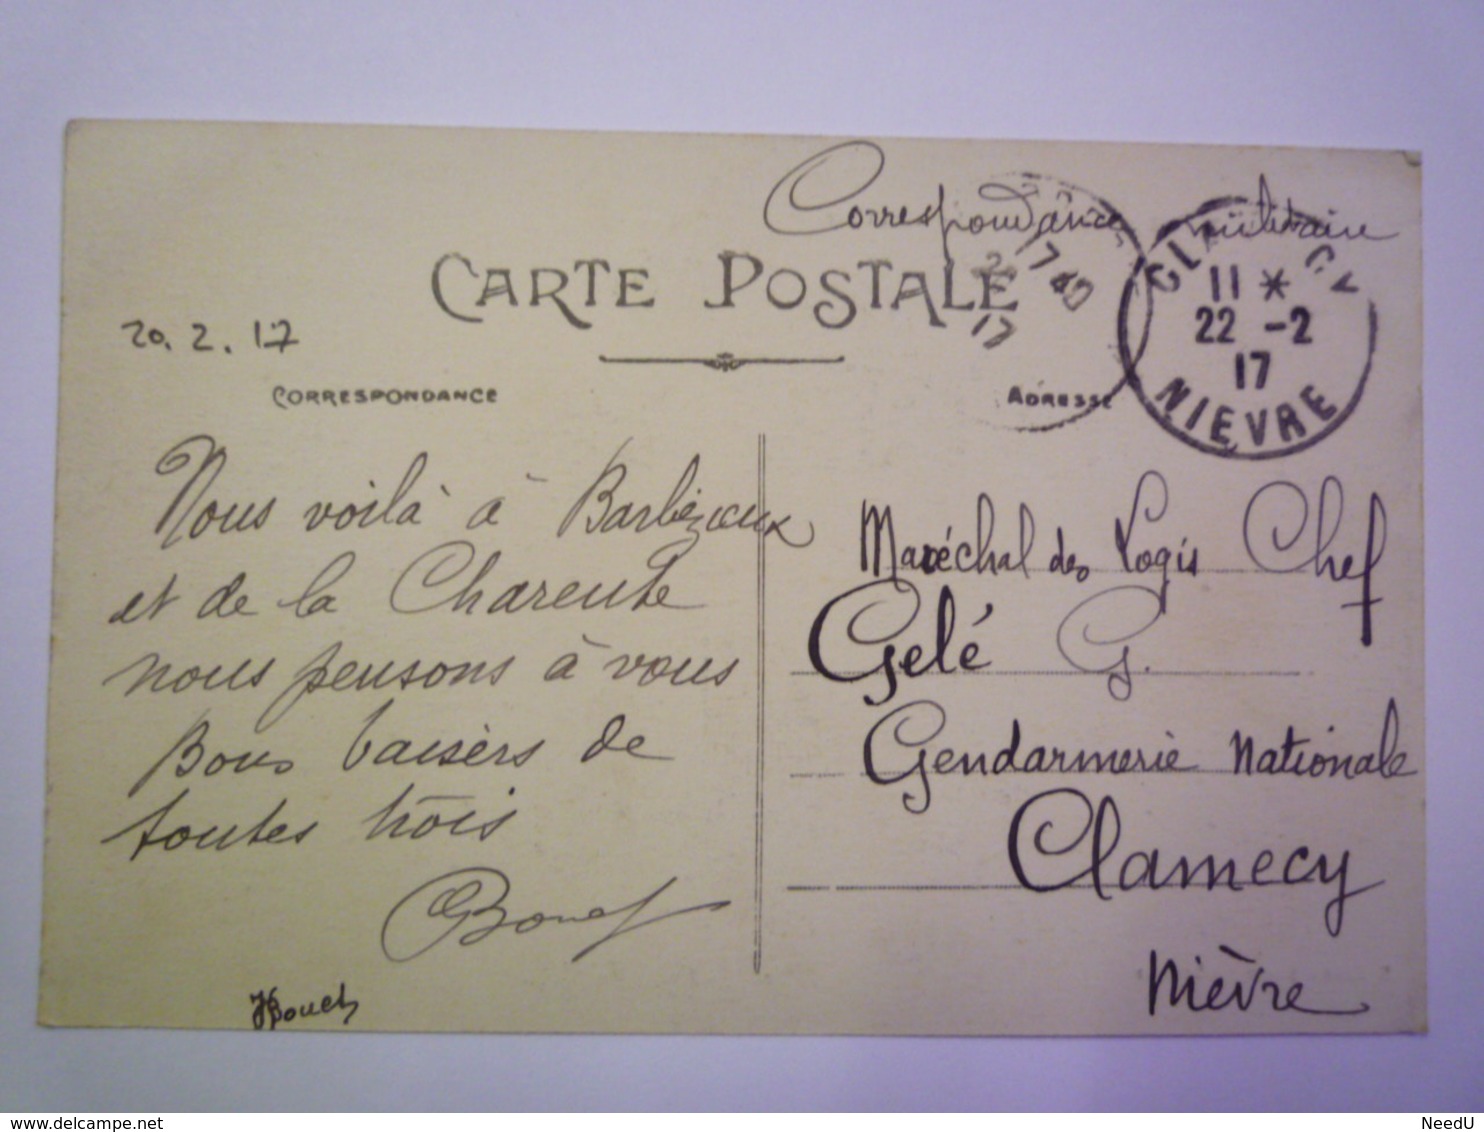 Correspondance militaire
CARTE POSTALE
17 40
17
CLAMECY
11 *
22 -2
17
NIEVRE
20.2.17
CORRESPONDANCE
ADRESSE
Nous voilà à Barbézieux
et de la Charente
nous pensons à vous
Bons baisers de
toutes trois
Bouet
HBouet
Maréchal des Logis Chef
Gelé G.
Gendarmerie Nationale
Clamecy
Nièvre
delcampe.net
NeedU